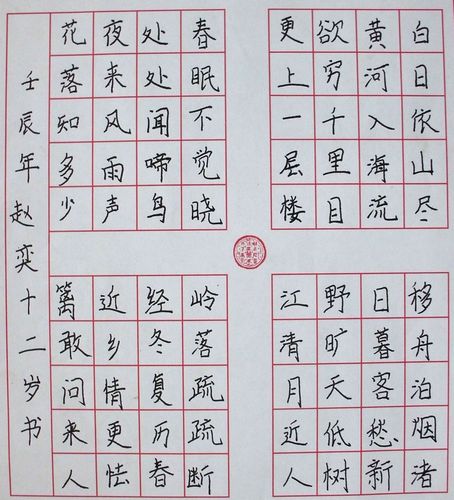 白日依山尽
黄河入海流
欲穷千里目
更上一层楼
春眠不觉晓
处处闻啼鸟
夜来风雨声
花落知多少
移舟泊烟渚
日暮客愁新
野旷天低树
江清月近人
岭落疏疏断
经冬复历春
近乡情更怯
篱敢问来人
壬辰年赵奕十二岁书